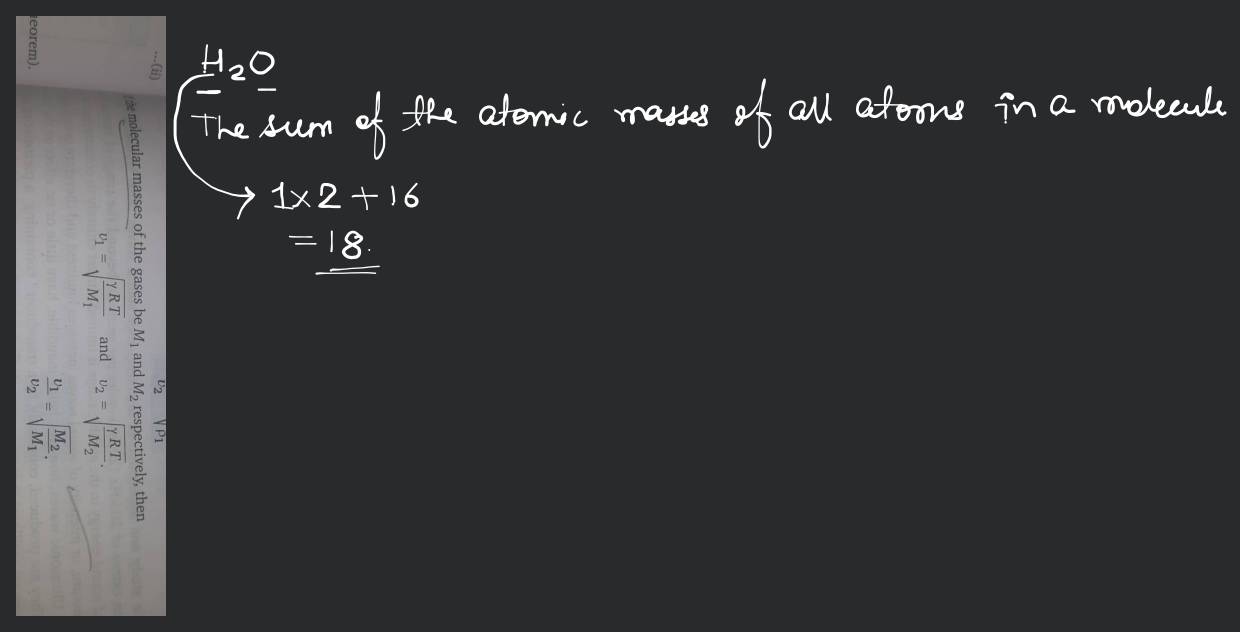 eorem).
...(ii)
the molecular masses of the gases be M₁ and M₂ respectively, then
υ₁ = √(γRT/M₁) and υ₂ = √(γRT/M₂).
υ₁/υ₂ = √(M₂/M₁).
υ₂ √ρ₁
H₂O
The sum of the atomic masses of all atoms in a molecule
1×2+16
=18.